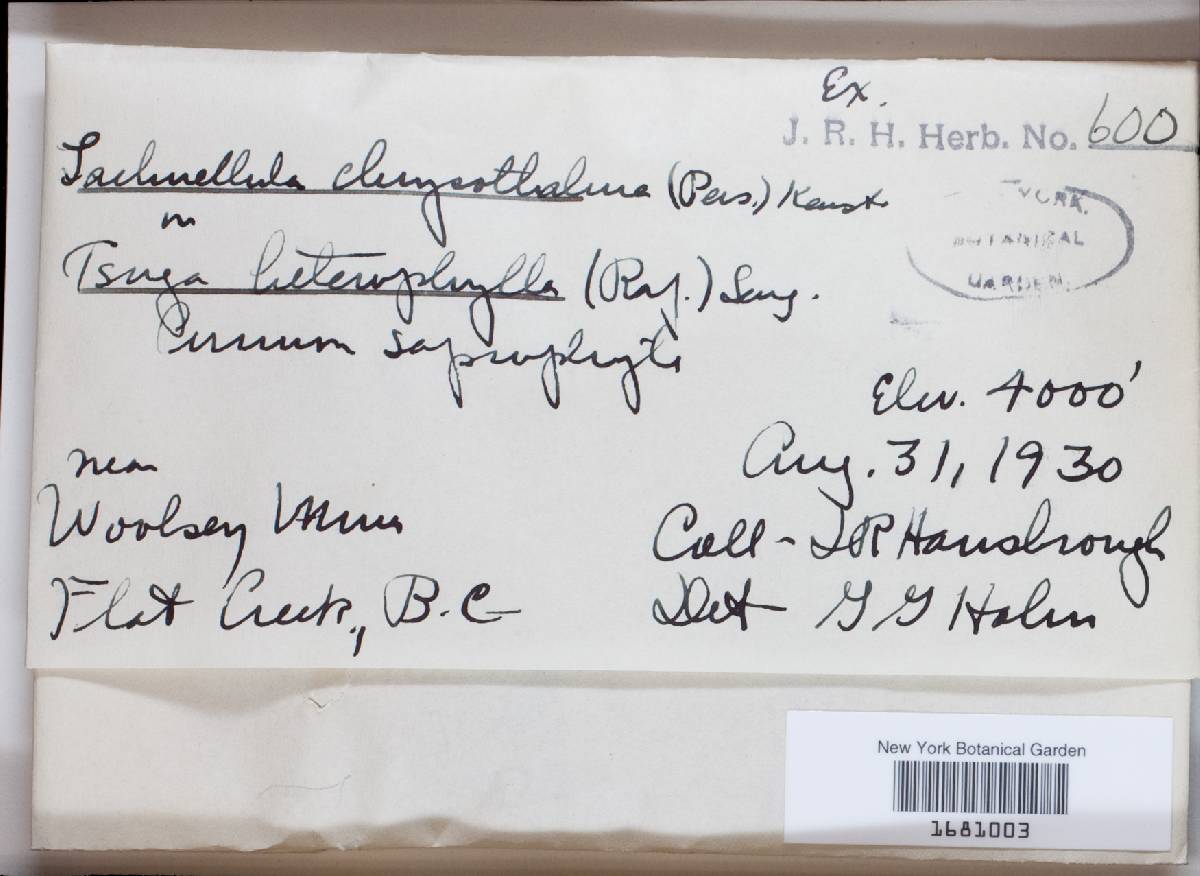 Ex.
J. R. H. Herb. No. 600
Lachnellula chrysothalma (Pers.) Karst
on
Tsuga heterophylla (Raf.) Sarg.
YORK
BOTANICAL
GARDEN.
Common saprophyte
Elev. 4000'
near
Aug. 31, 1930
Woolsey Mine
Coll - J R Hansbrough
Flat Creek, B.C
Det - G G Hahn
New York Botanical Garden
1681003